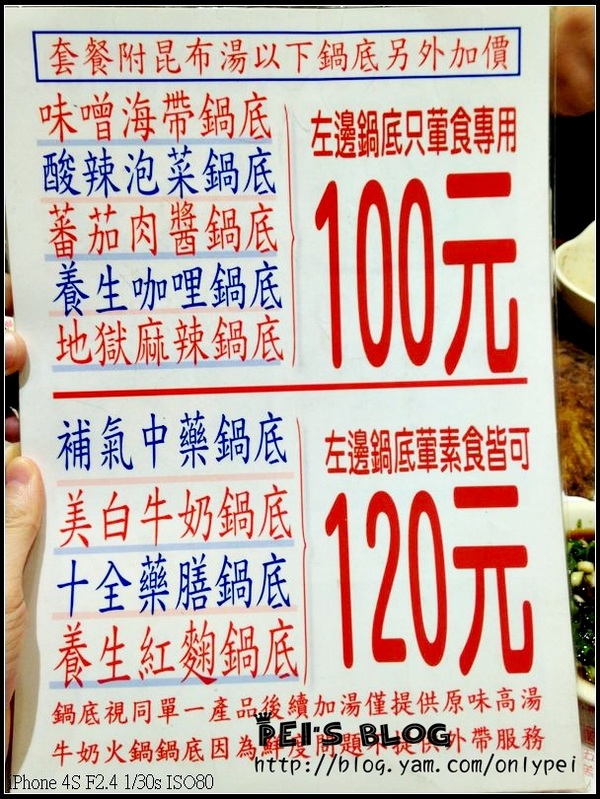 套餐附昆布湯以下鍋底另外加價
味噌海帶鍋底
酸辣泡菜鍋底
蕃茄肉醬鍋底
養生咖哩鍋底
地獄麻辣鍋底
左邊鍋底只葷食專用
100元
補氣中藥鍋底
美白牛奶鍋底
十全藥膳鍋底
養生紅麴鍋底
左邊鍋底葷素食皆可
120元
鍋底視同單一產品後續加湯僅提供原味高湯
牛奶火鍋鍋底因為鮮度問題不提供外帶服務
PEI'S BLOG
http://blog.yam.com/onlypei
iPhone 4S F2.4 1/30s ISO80